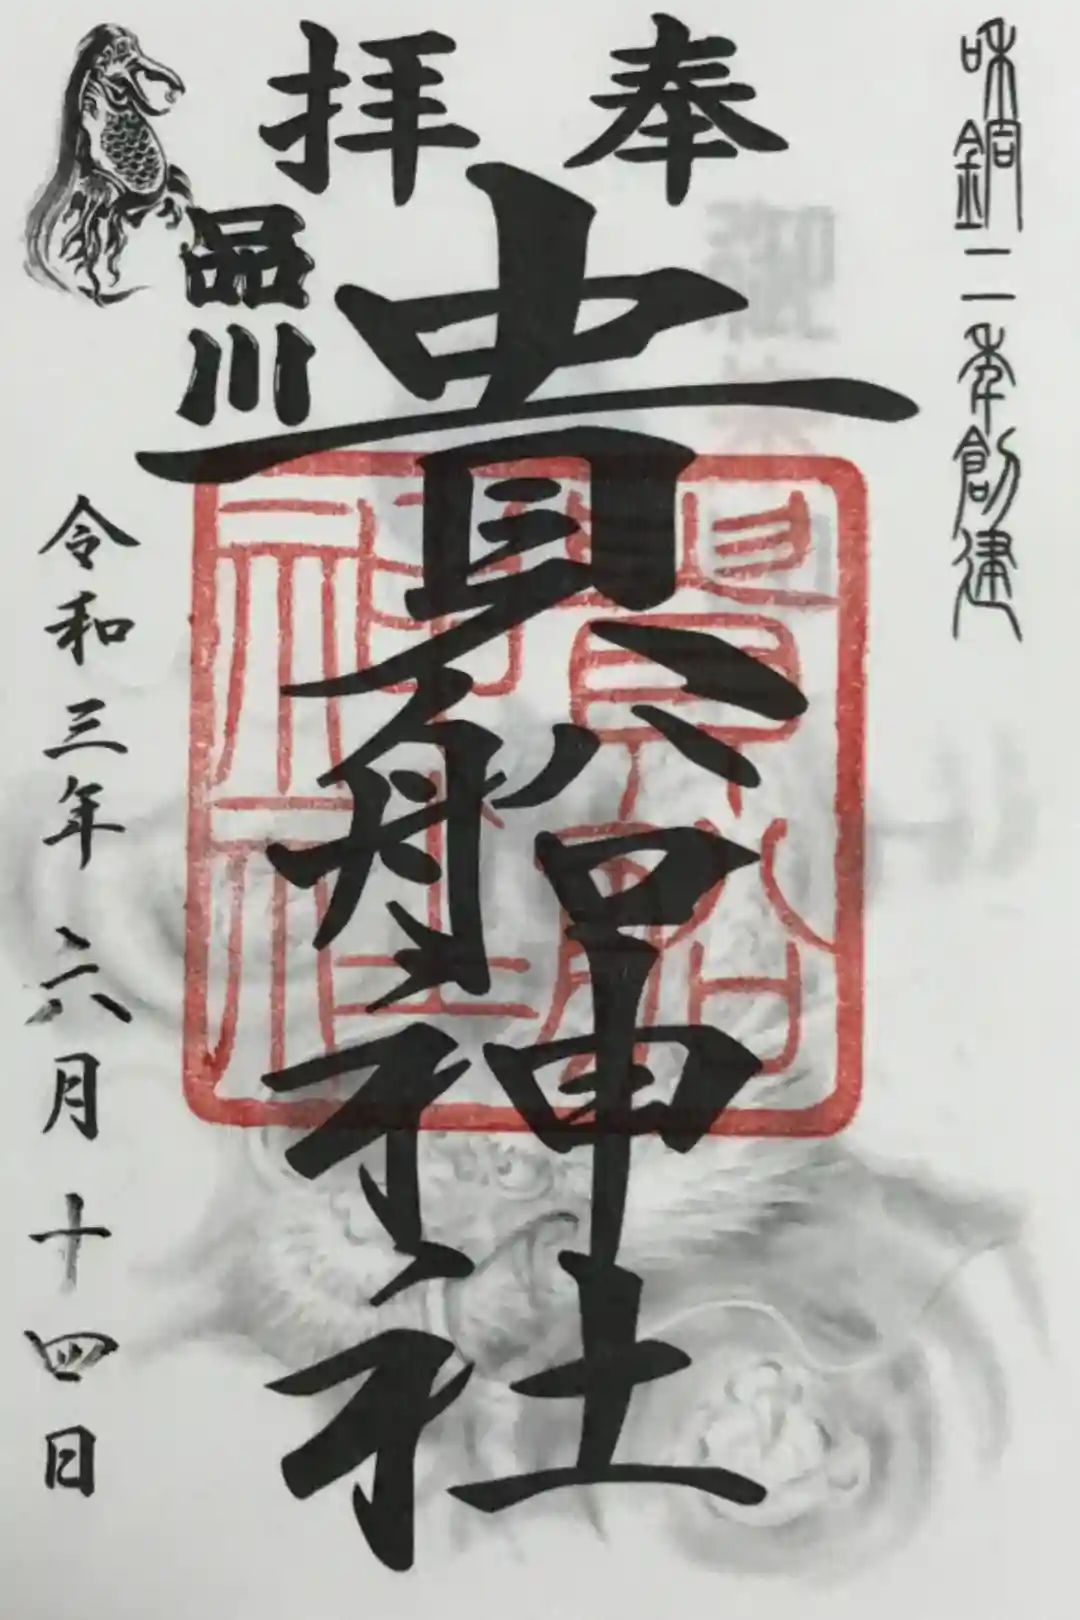 味銅二年創建
奉拝
貴船神社
品川
貴船神社
令和三年六月十四日